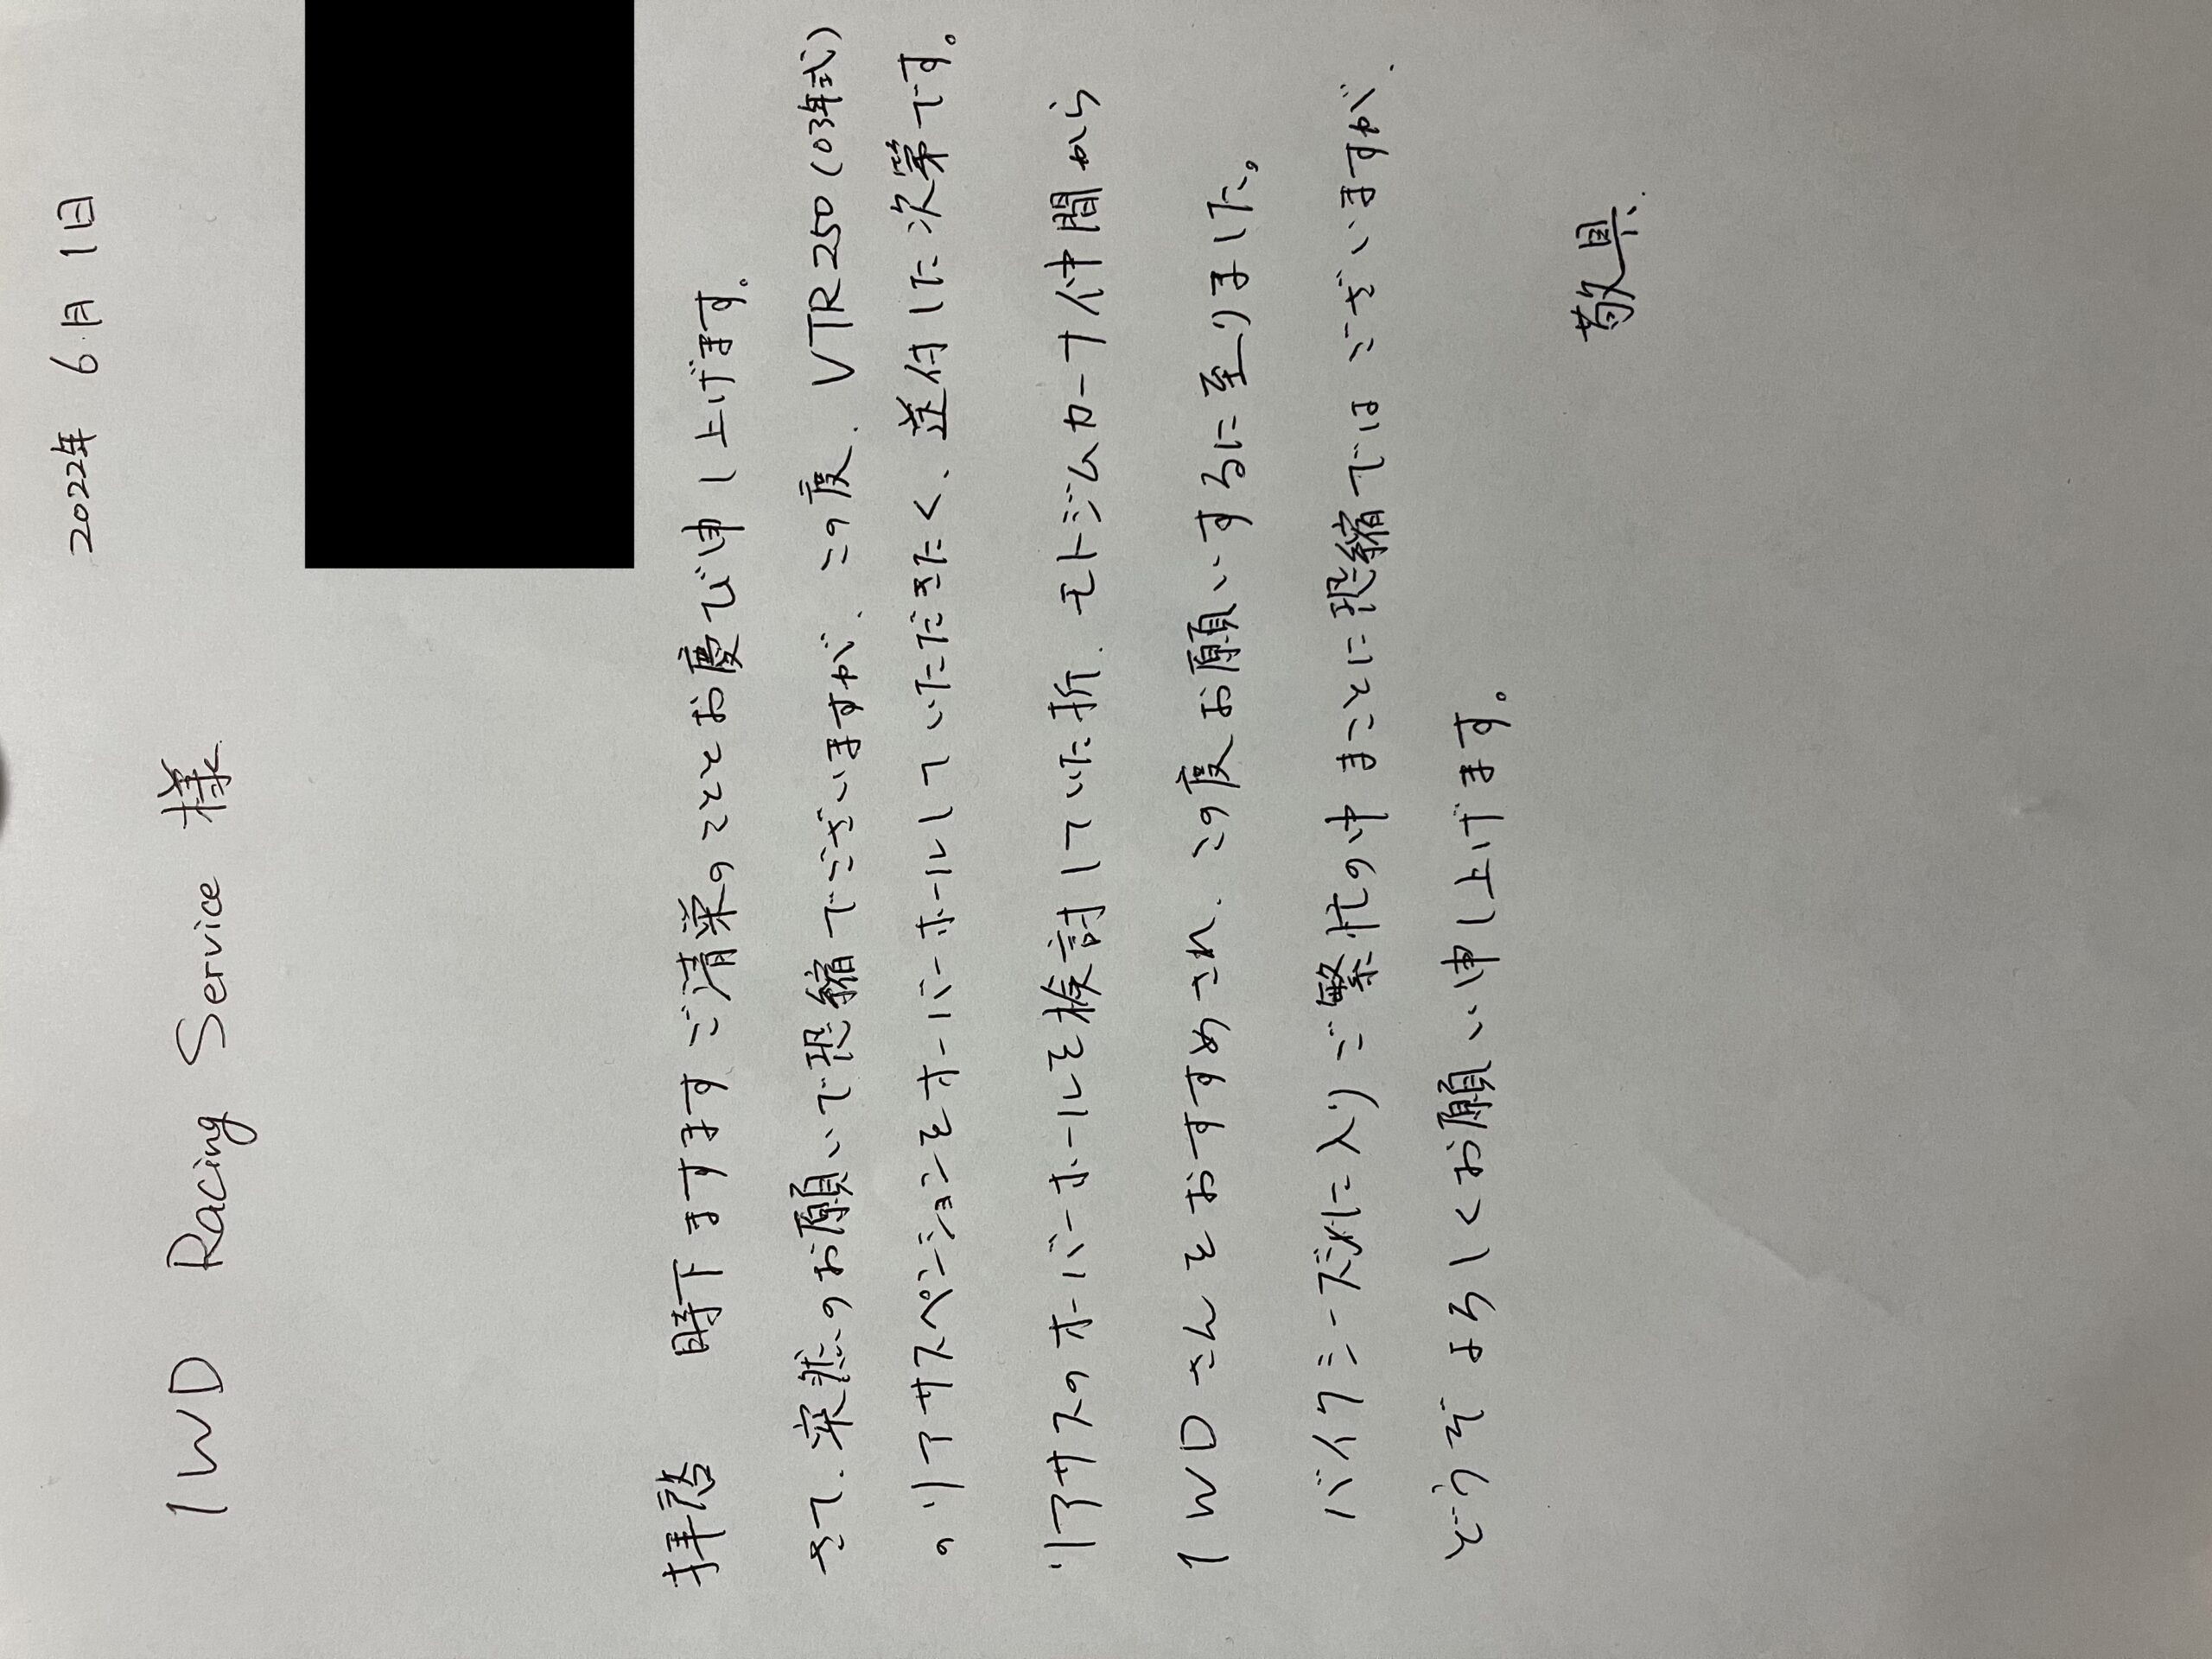 2022年 6月 1日
1WD Racing Service 様
拝啓 時下ますますご清栄のこととお慶び申し上げます。
さて、突然のお願いで恐縮でございますが、この度、VTR250(03年式)
のリアサスペンションをオーバーホールしていただきたく、送付した次第です。
リアサスのオーバーホールを検討していた折、モトジムカーナ仲間から
1WDさんをおすすめされ、この度お願いするに至りました。
バイクシーズンに入りご繁忙の中まことに恐縮ではございますが、
どうぞよろしくお願い申し上げます。
敬具